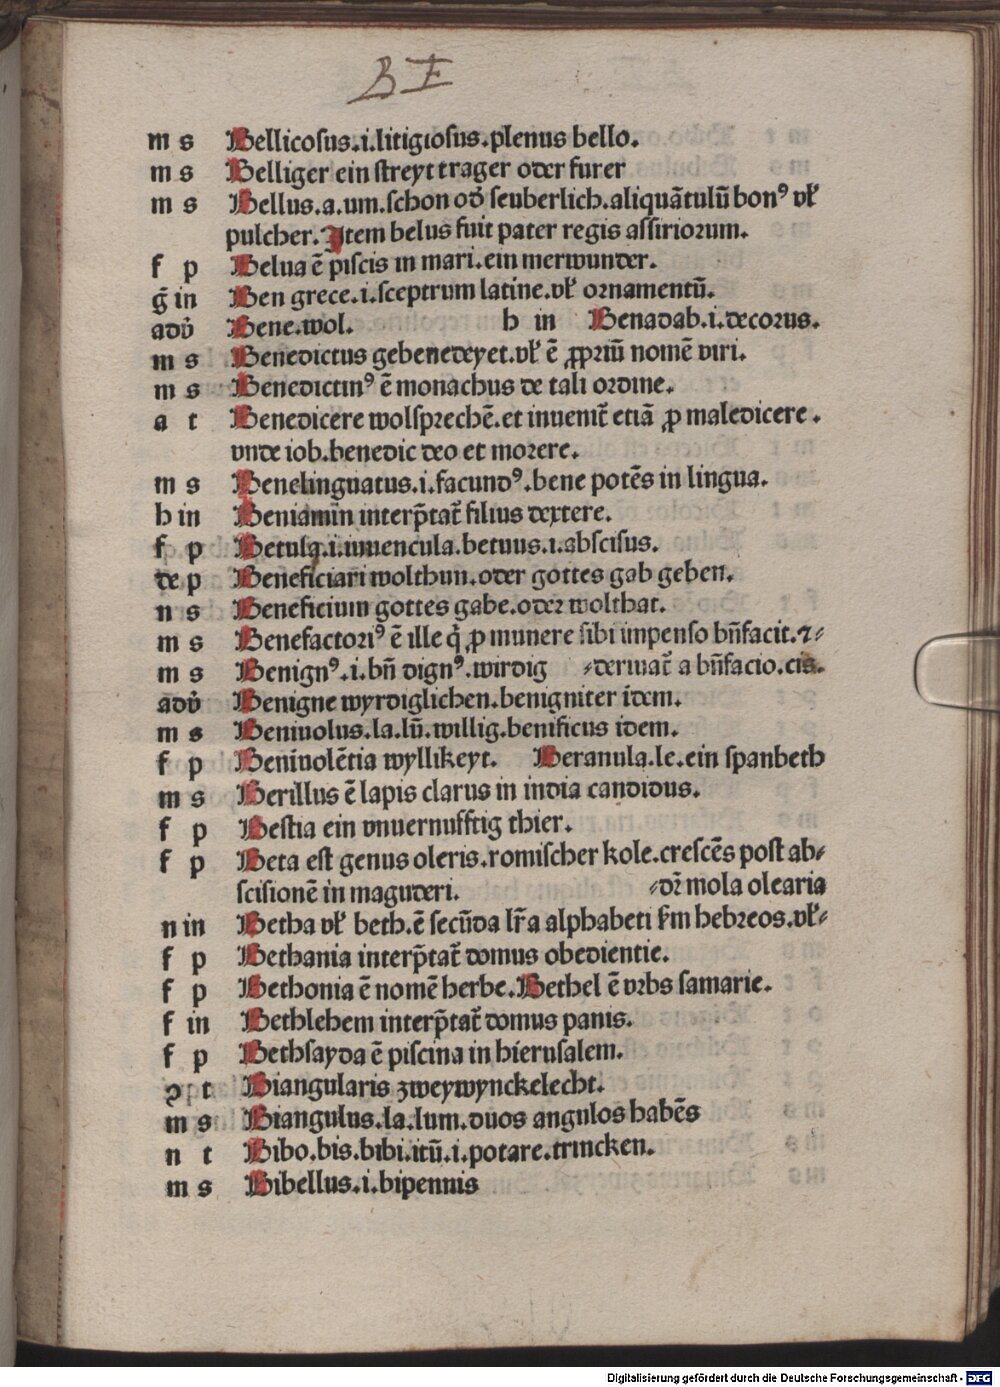 BE
m s Bellicoſus.i.litigioſus.plenus bello.
m s Belliger ein ſtreyt trager oder furer
m s Bellus.a.um.ſchon od̕ ſeuberlich.aliquãtulũ bonꝰ vƚ
pulcher.Item belus fuit pater regis aſſirioꝛum.
f p Belua ẽ piſcis in mari.ein merwunder.
g̃ in Ben grece.i.ſceptrum latine.vƚ ornamentũ.
adv̕ Bene.wol. h in Benadab.i.decoꝛus.
m s Benedictus gebenedeyet.vƚ ẽ ꝓpriũ nomẽ viri.
m s Benedictinꝰ ẽ monachus de tali oꝛdine.
a t Benedicere wolſpꝛechẽ.et inuenit̃ etiã ꝓ maledicere.
vnde iob.benedic deo et moꝛere.
m s Benelinguatus.i.facundꝰ.bene potẽs in lingua.
h in Beniamin interp̃tat̃ filius dextere.
f p Betula.i.iuuencula.betuus.i.abſciſus.
de p Beneficiari wolthun.oder gottes gab geben.
n s Beneficium gottes gabe.odeꝛ wolthat.
m s Benefactoriꝰ ẽ ille q̇ ꝓ munere ſibi impenſo bñfacit.⁊⸗
m s Benignꝰ.i.bñ dignꝰ.wirdig ⸗deriuat̃ a bñfacio.cis.
adv̕ Benigne wyrdiglichen.benigniter idem.
m s Beniuolus.la.lũ.willig.benificus idem.
f p Beniuolẽtia wyllikeyt. Beranula.le.ein ſpanbeth
m s Berillus ẽ lapis clarus in india candidus.
f p Beſtia ein vnuernufftig thier.
f p Beta eſt genus oleris.romiſcher kole.creſcẽs poſt ab⸗
ſciſionẽ in maguderi. ⸗dr̃ mola olearia
n in Betha vƚ beth.ẽ ſecũda lr̃a alphabeti ẜm hebꝛeos.vƚ⸗
f p Bethania interp̃tat̃ domus obedientie.
f p Bethonia ẽ nomẽ herbe.Bethel ẽ vꝛbs ſamarie.
f in Bethlehem interp̃tat̃ domus panis.
f p Bethſayda ẽ piſcina in hieruſalem.
ꝯ t Biangularis zweywynckelecht.
m s Biangulus.la.lum.duos angulos habẽs
n t Bibo.bis.bibi.itũ.i.potare.trincken.
m s Bibellus.i.bipennis
Digitalisierung gefördert durch die Deutsche Forschungsgemeinschaft - DFG